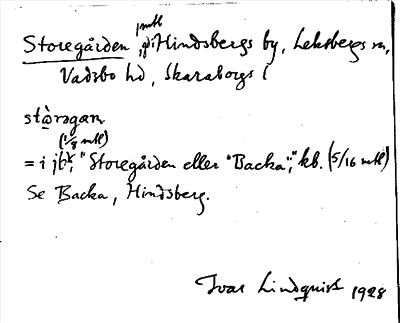 ½ mtl
Storegården, i Hindsbergs by, Leksbergs sn,
Vadsbo hd, Skaraborgs l
stòrəgɑn
(1/8 mtl)
= i jb, "Storegården eller "Backa"," kb. (5/16 mtl)
Se Backa, Hindsberg.
Ivar Lindquist 1928